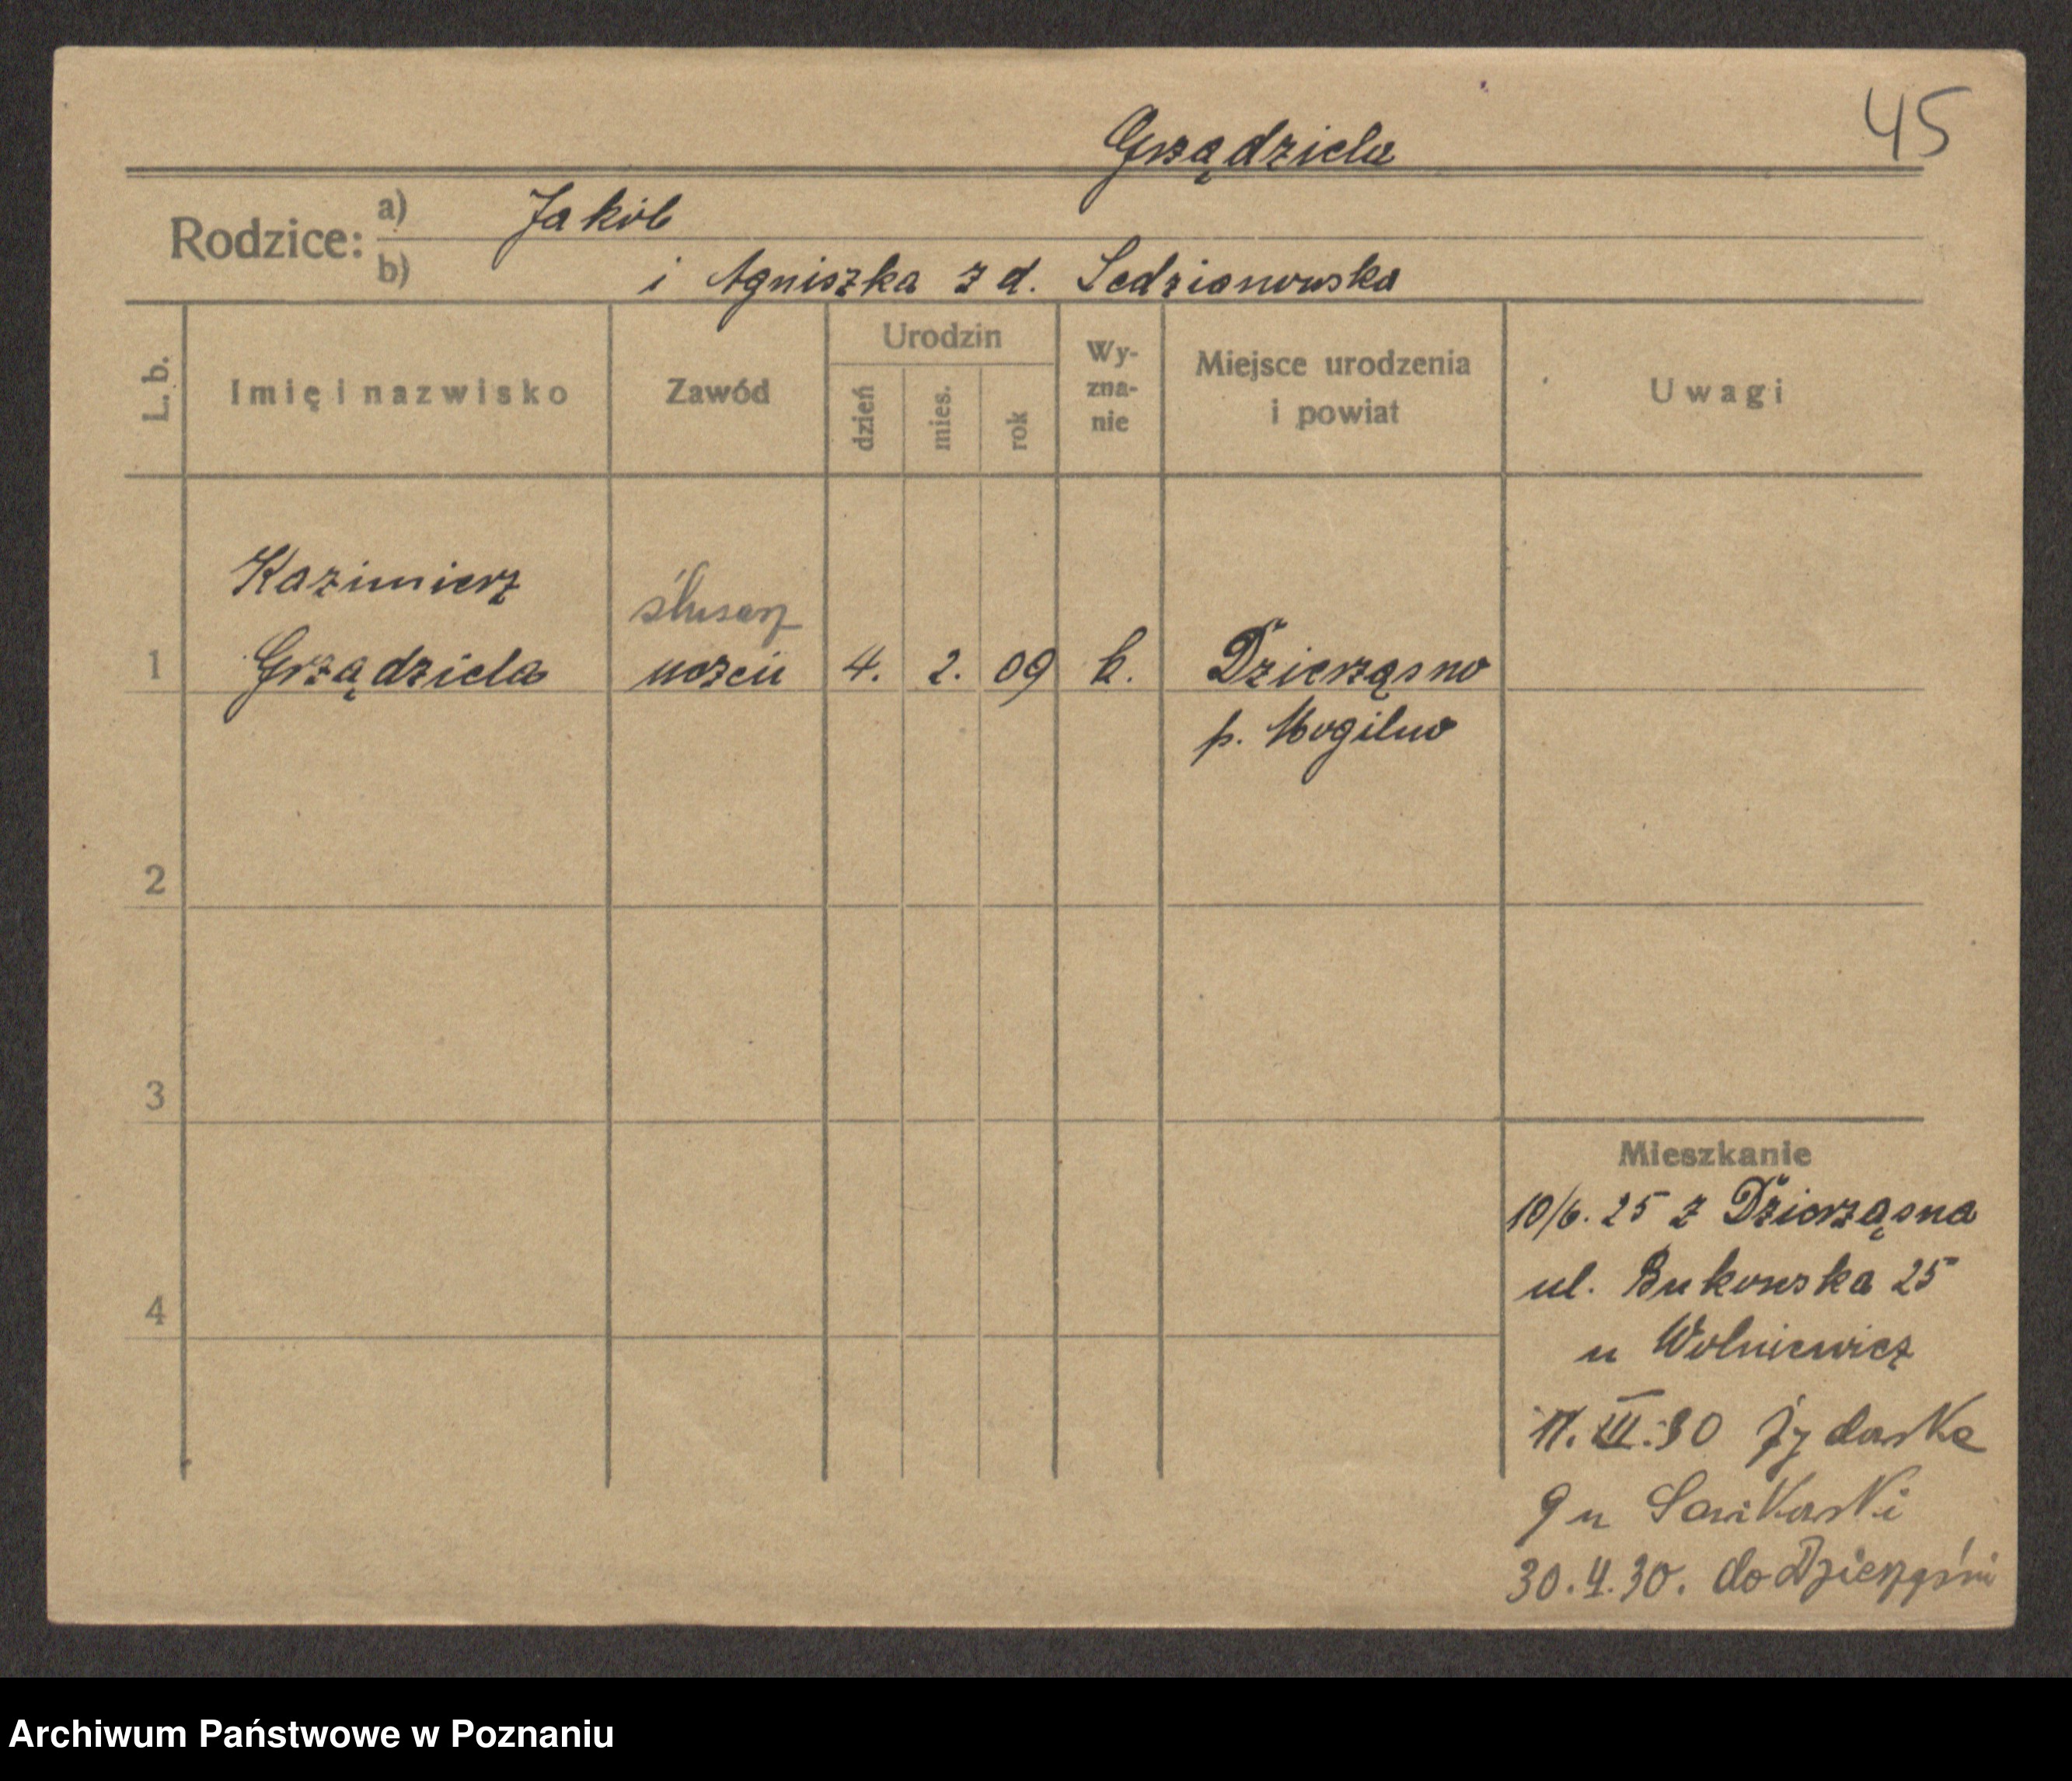 45
Grządziela
Rodzice: a) Jakób
b) i Agniszka z d. Sedzianowska
L. b. Imię i nazwisko Zawód Urodzin dzień mies. rok Wy-zna-nie Miejsce urodzenia i powiat Uwagi
Kazimierz
ślusarz
1 Grządziela uczeń 4. 2. 09 k. Dzierzązno
p. Mogilno
2
3
Mieszkanie
10/6. 25 z Dzierzązna
ul. Bukowska 25
4
u Wolniewicz
11. III. 30
9 u
30. 4. 30. do
Archiwum Państwowe w Poznaniu